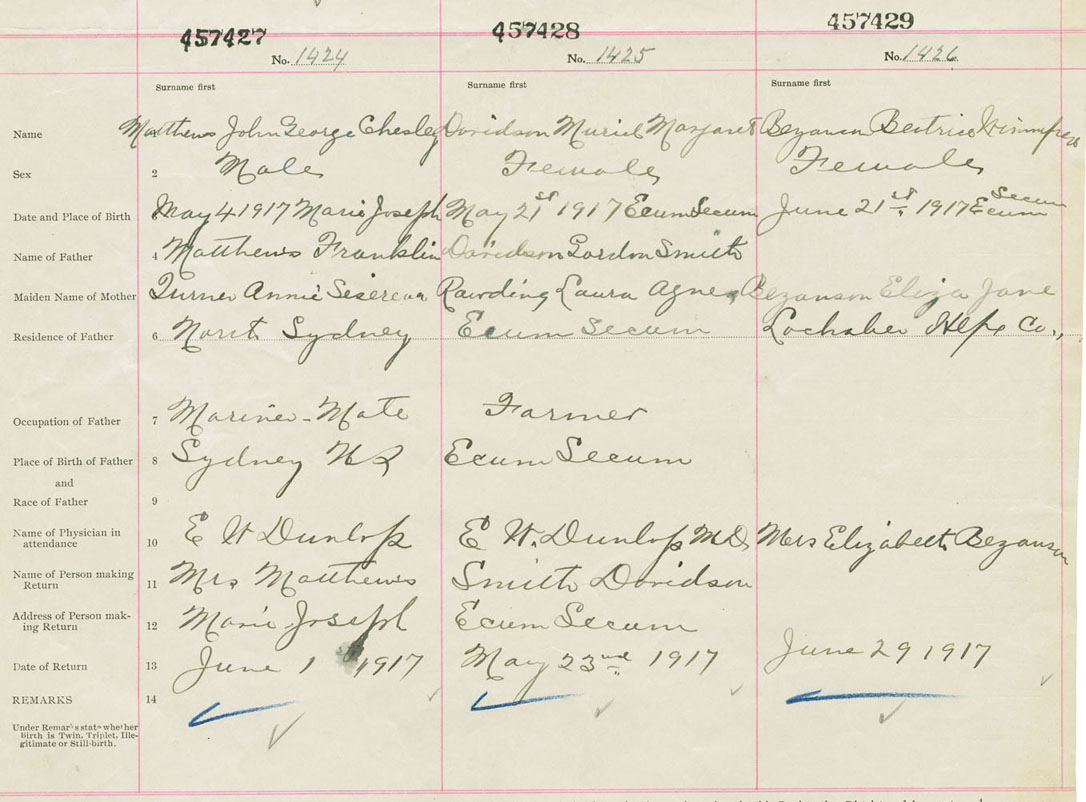 457427 457428 457429
No. 1424 No. 1425 No. 1426
Surname first Surname first Surname first
Name 1 Matthews John George Chesley Davidson Muriel Margaret Bezanson Beatrice
Sex 2 Male Female Female
Date and Place of Birth May 4 1917 Marie Joseph May 21st 1917 Ecum Secum June 21st 1917 Ecum Secum
Name of Father 4 Matthews Franklin Davidson Gordon Smith
Maiden Name of Mother Turner Annie Rawding Laura Agnes Bezanson Eliza Jane
Residence of Father 6 North Sydney Ecum Secum Lochaber Hfx Co.,
Occupation of Father 7 Marine - Mate Farmer
Place of Birth of Father 8 Sydney Ecum Secum
and
Race of Father 9
Name of Physician in
attendance 10 E W Dunlop E W. Dunlop M.D. Mrs Elizabeth Bezanson
Name of Person making
Return 11 Mrs Matthews Smith Davidson
Address of Person mak-
ing Return 12 Marie Joseph Ecum Secum
Date of Return 13 June 1 1917 May 23nd 1917 June 29 1917
REMARKS 14
Under Remarks state whether
birth is Twin, Triplet, Ille-
gitimate or Still-birth.